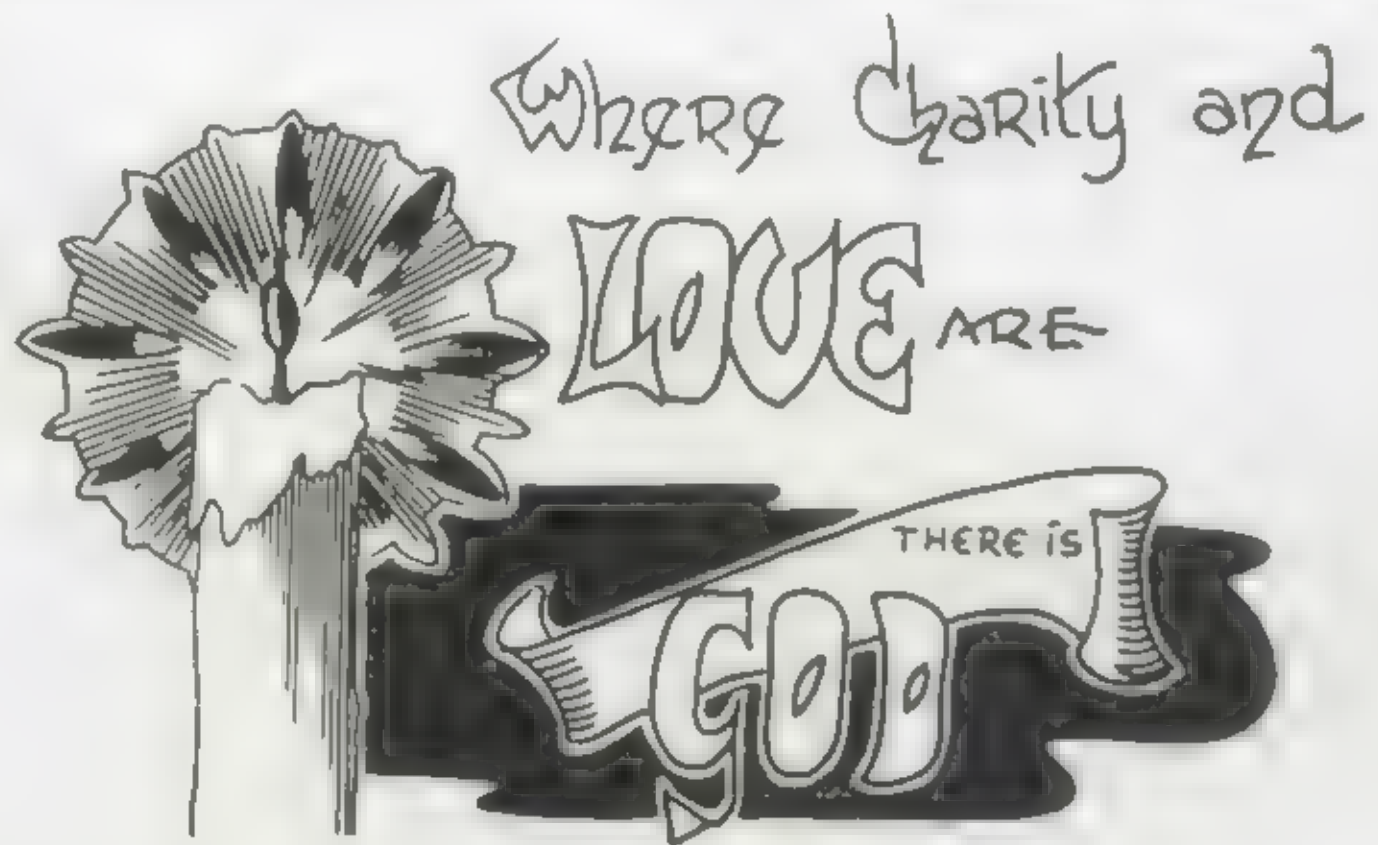 Where Charity and
LOVE ARE
THERE iS
GOD